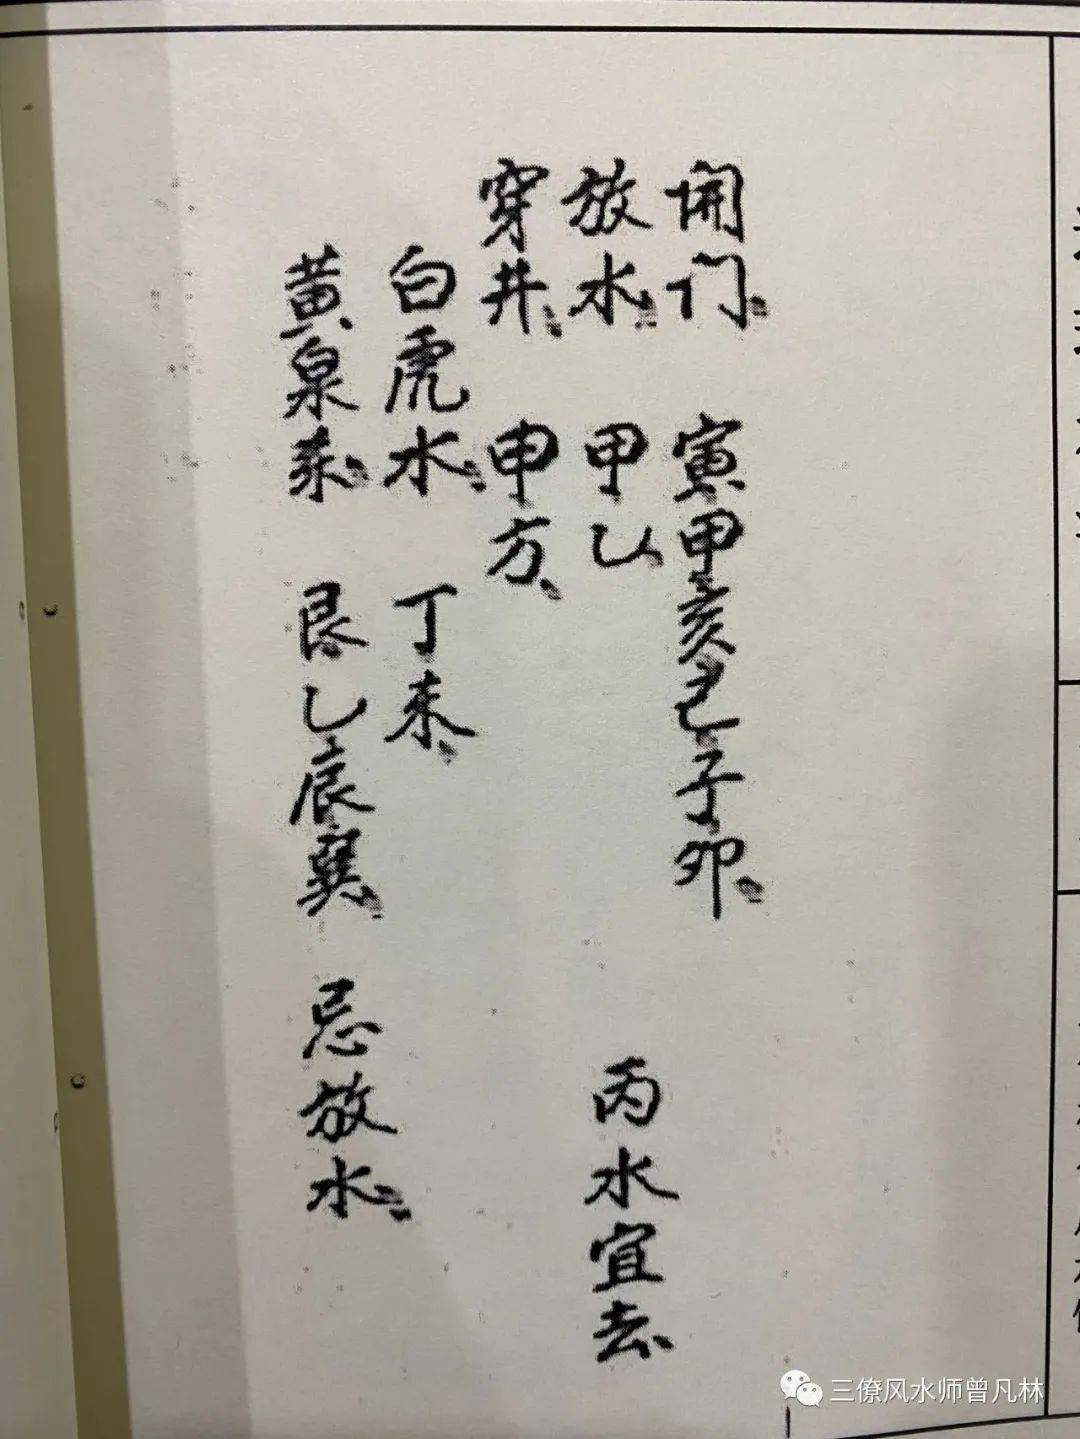 開门、寅甲亥己子卯、
放水、甲乙、丙水宜去、
穿井、申方、
白虎水、丁未、
黄泉杀、艮乙辰巽、忌放水、
三僚风水师曾凡林